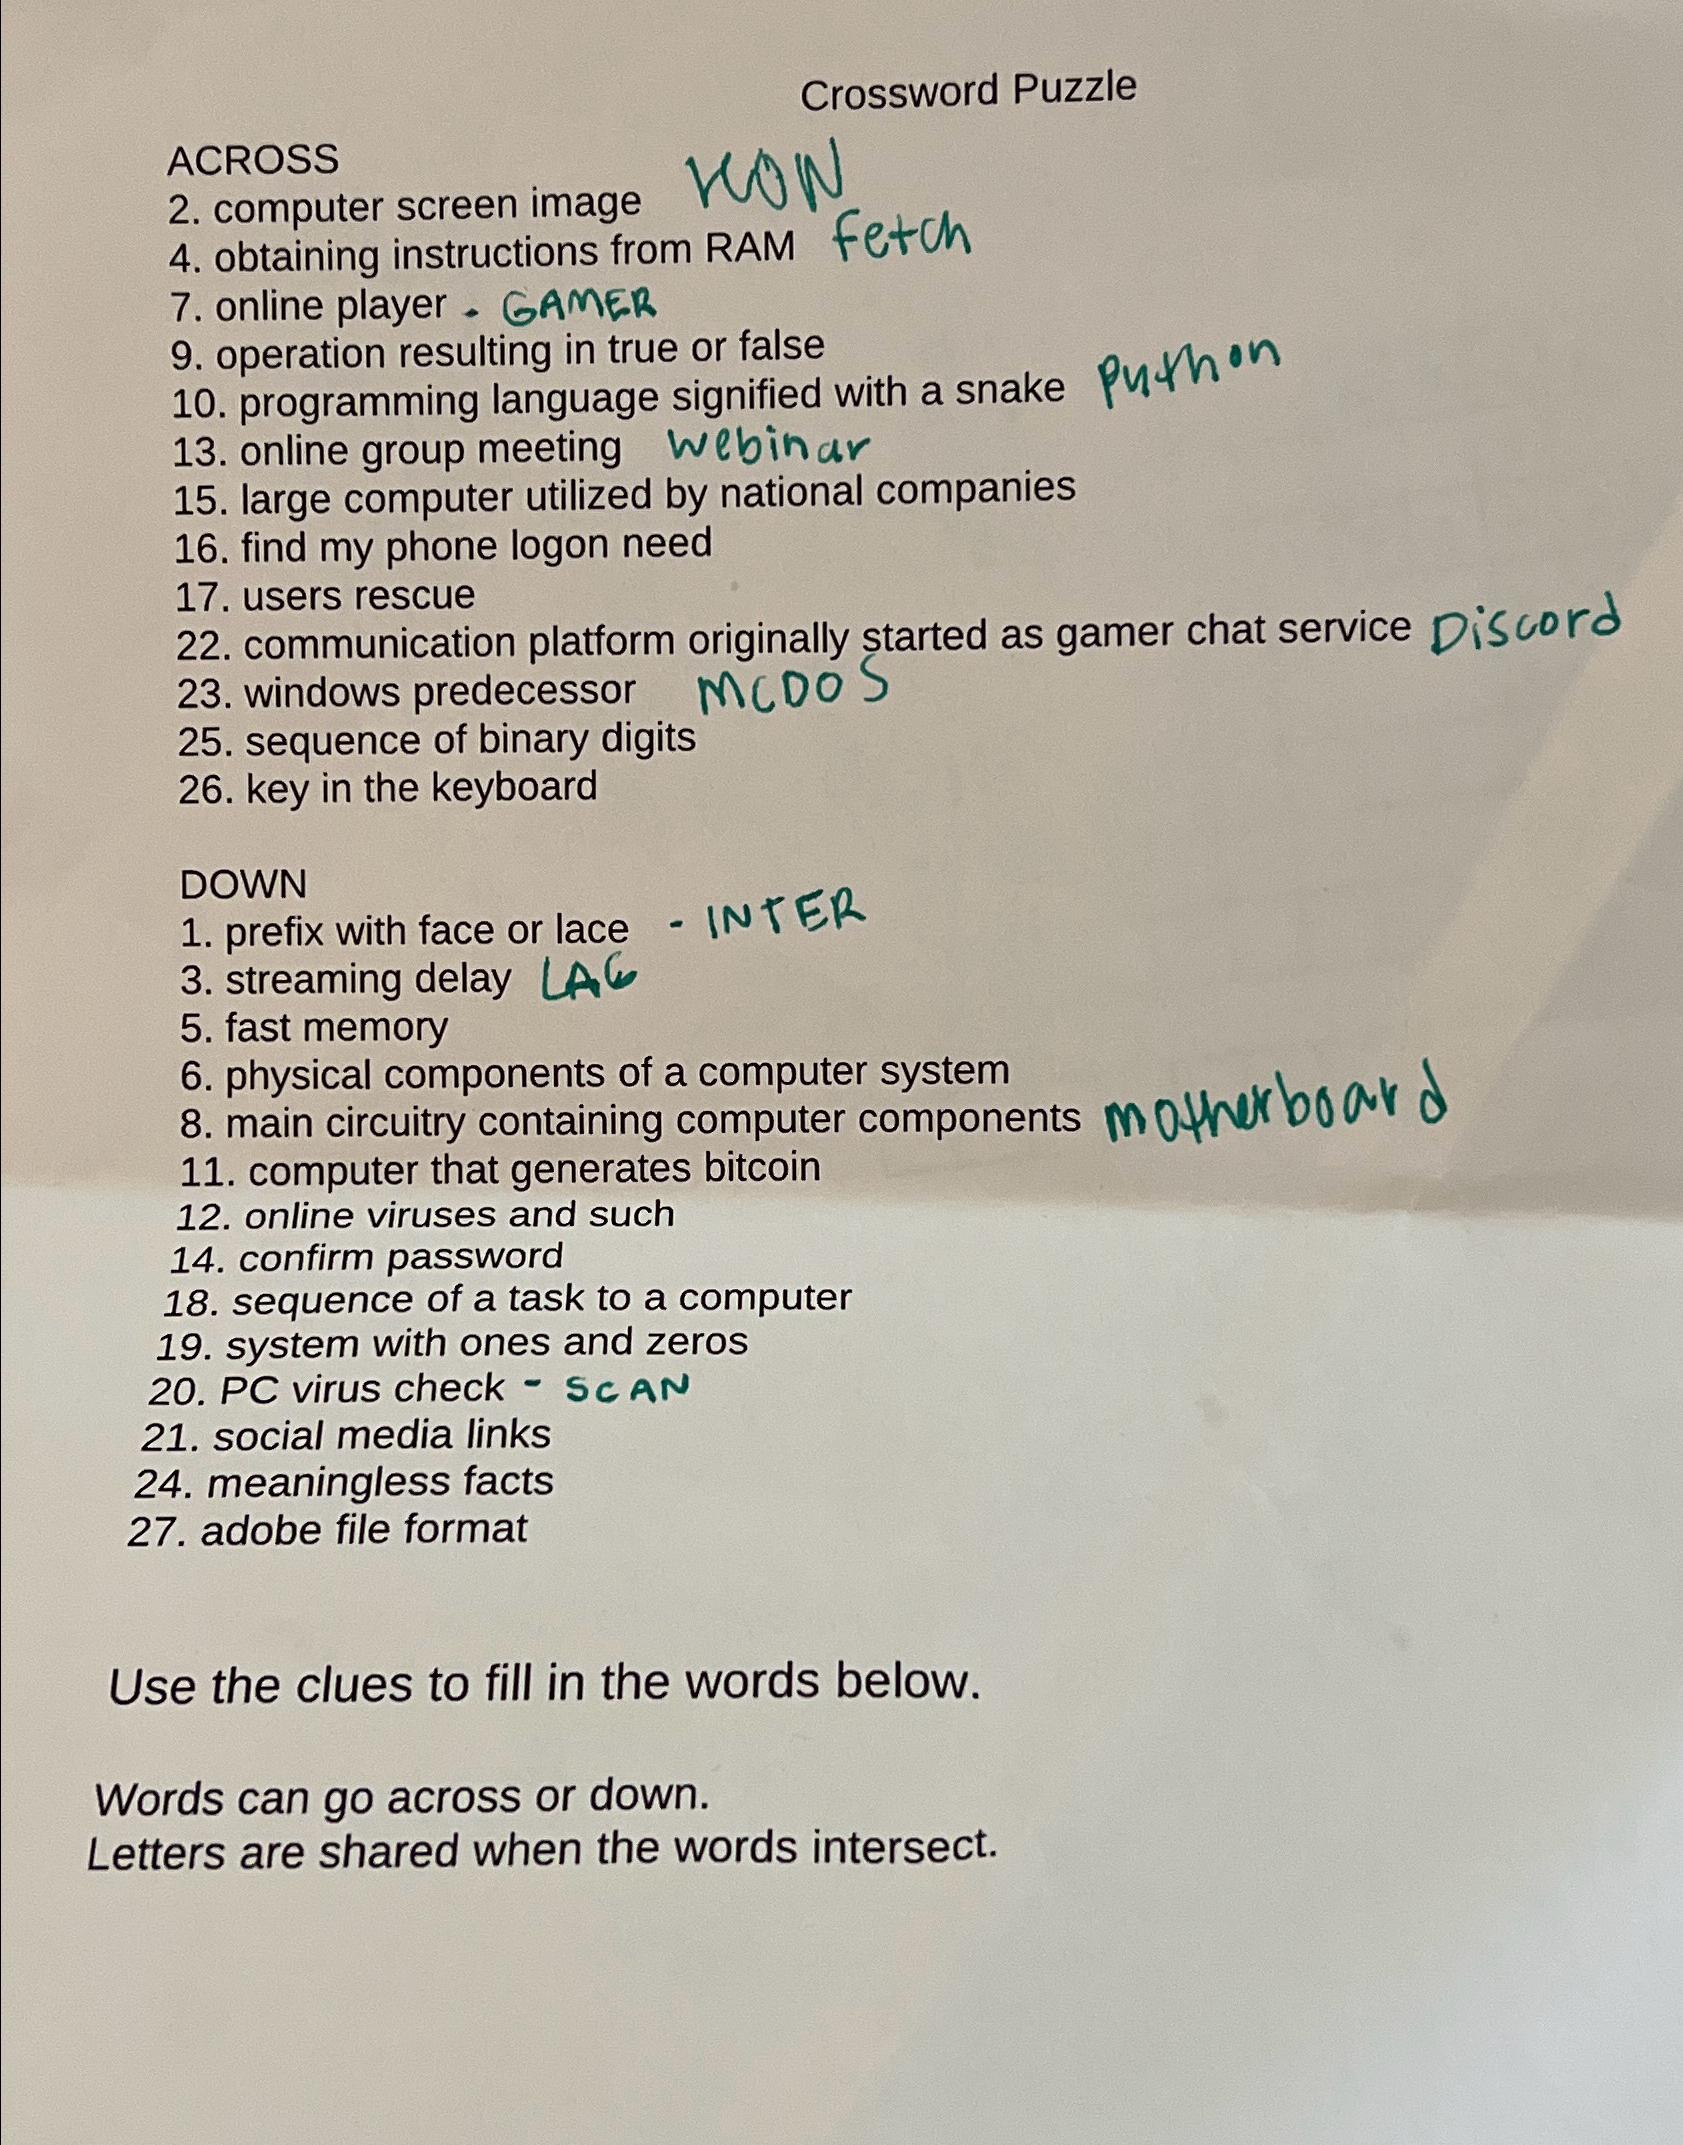 Crossword Puzzle
ACROSS
2. computer screen image ICON
4. obtaining instructions from RAM Fetch
7. online player - GAMER
9. operation resulting in true or false
10. programming language signified with a snake Python
13. online group meeting Webinar
15. large computer utilized by national companies
16. find my phone logon need
17. users rescue
22. communication platform originally started as gamer chat service Discord
23. windows predecessor MCDOS
25. sequence of binary digits
26. key in the keyboard
DOWN
1. prefix with face or lace - INTER
3. streaming delay LAG
5. fast memory
6. physical components of a computer system
8. main circuitry containing computer components motherboard
11. computer that generates bitcoin
12. online viruses and such
14. confirm password
18. sequence of a task to a computer
19. system with ones and zeros
20. PC virus check - SCAN
21. social media links
24. meaningless facts
27. adobe file format
Use the clues to fill in the words below.
Words can go across or down.
Letters are shared when the words intersect.